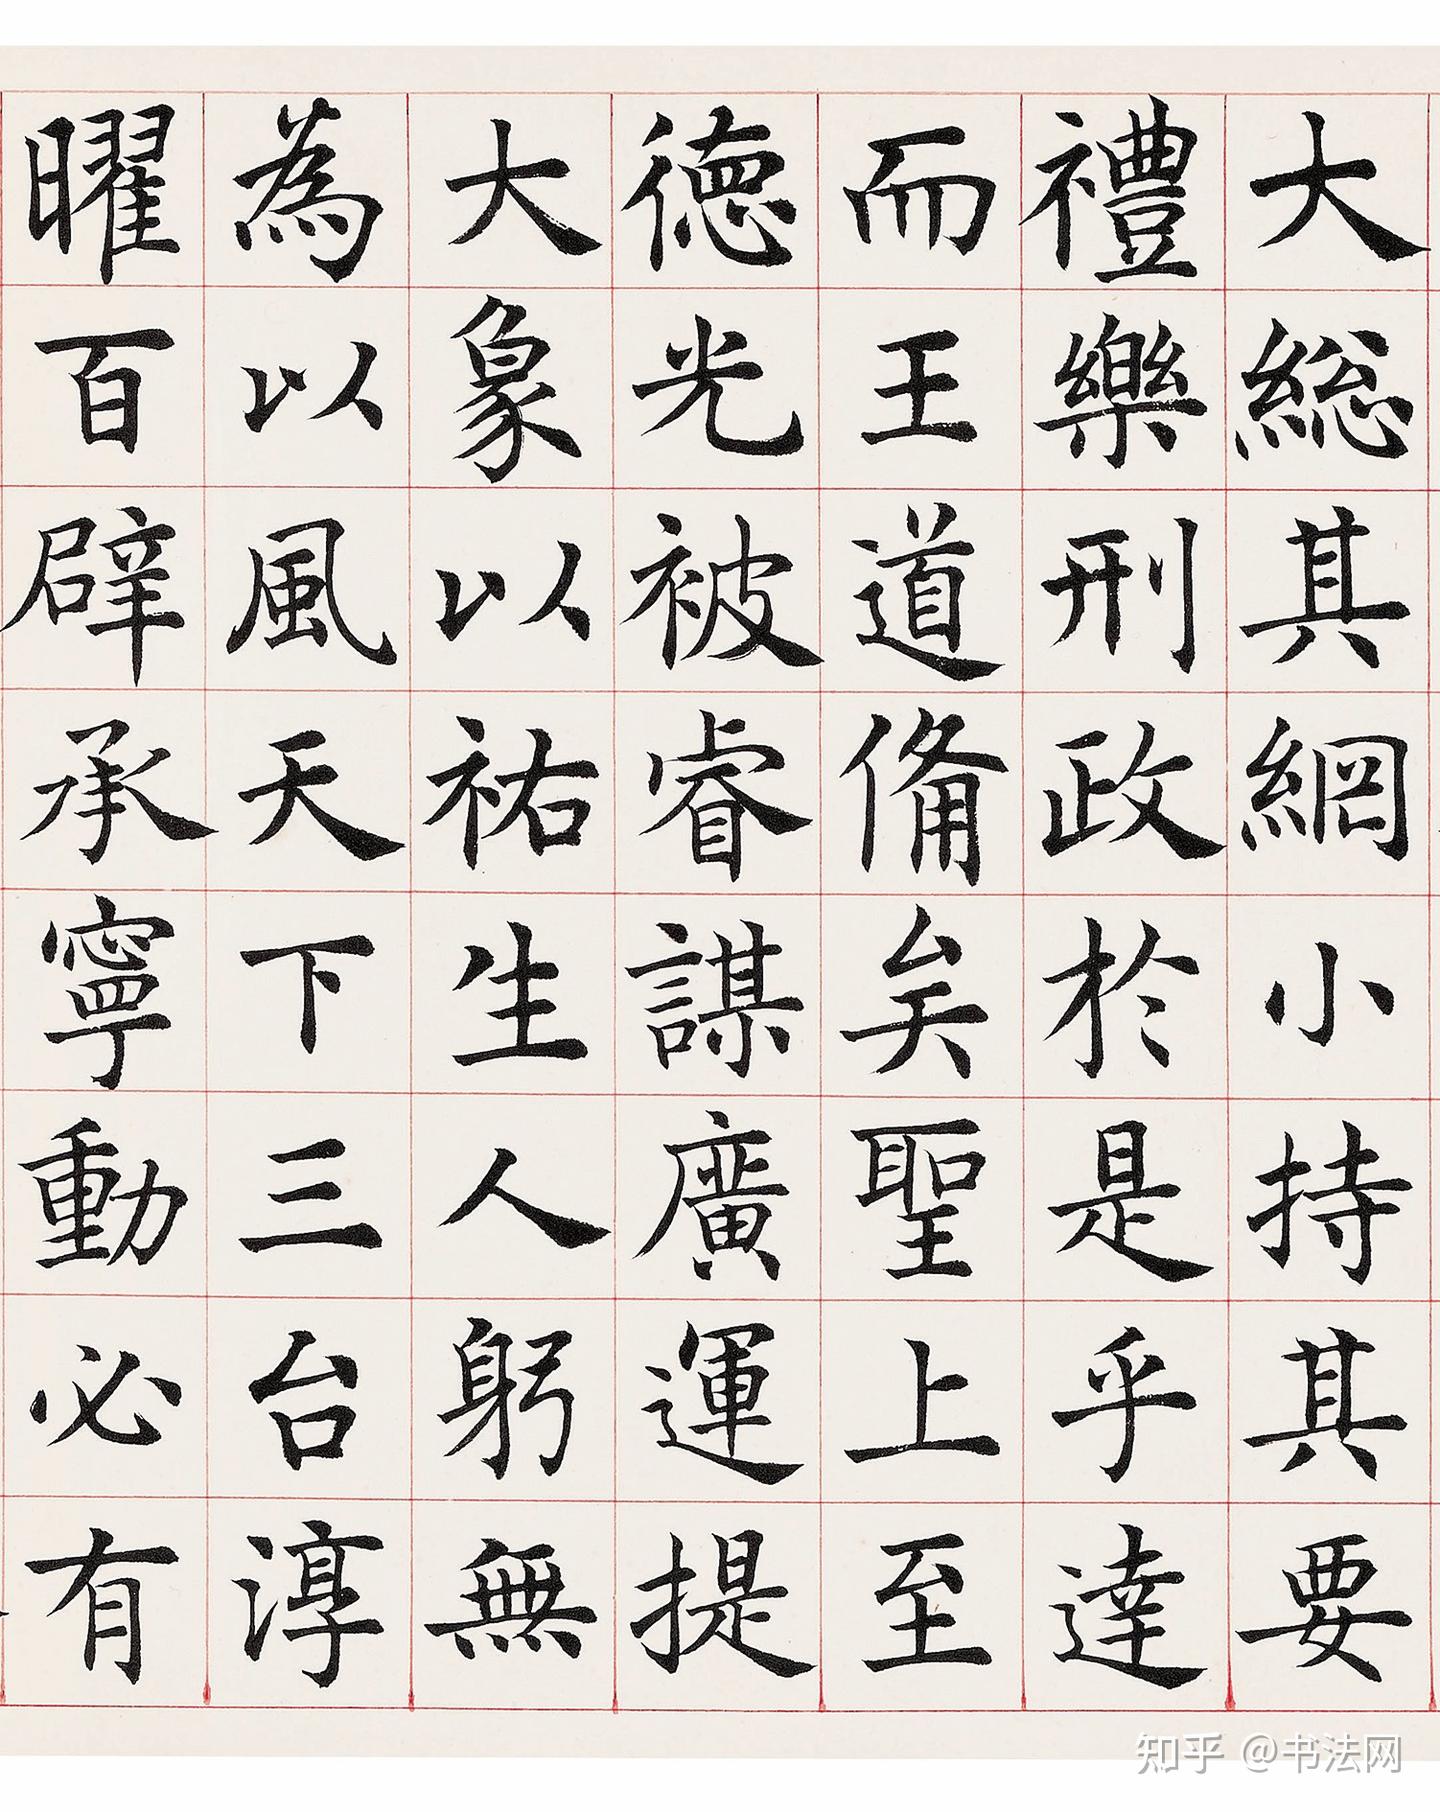 大総其網小持其要
禮樂刑政於是乎達
而王道俻矣聖上至
德光被睿謀廣運提
大象以祐生人躬無
為以風天下三台淳
曜百辟承寧動必有
知乎 @书法网